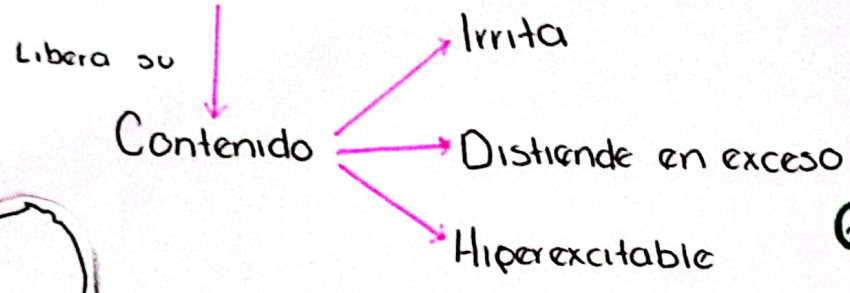 Libera su
Contenido
Irrita
Distiende en exceso
Hiperexcitable